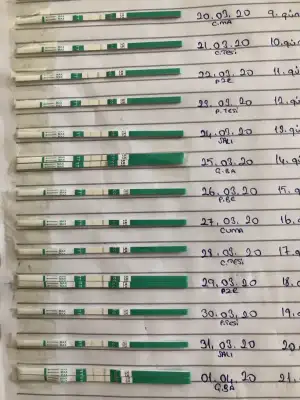 20.03.20 9.gü
CUMA
21.03.20 10.gü
C.TESİ
22.03.20 11.gü
PZR
23.03.20 12.gü
P.TESİ
24.03.20 13.gü
SALI
25.03.20 14.g
Ç.BA
26.03.20 15.
P.BE
27.03.20 16.
CUMA
28.03.20 17.
C.TESİ
29.03.20 18.
PZR
30.03.20 19.
P.TESİ
31.03.20 20.
SALI
01.04.20 21.
Ç.BA